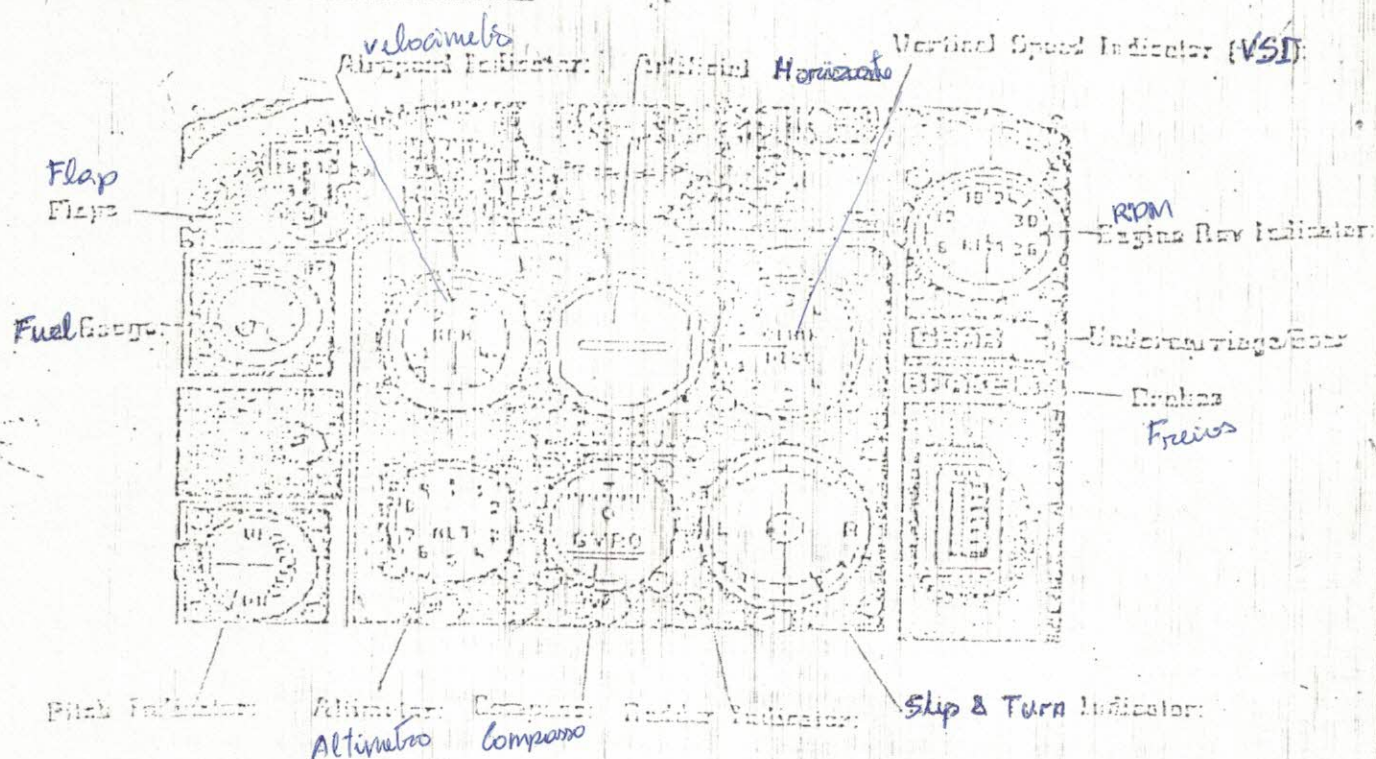 velocimetro
Airspeed Indicator
Artificial Horizonte
Vertical Speed Indicator (VSI)
Flap
Flaps
RPM
Engine Rev Indicator
30
Fuel Gauge
Undercarriage/Gear
Brakes
Freios
ALT
GYRO
L
R
Pitch Indicator
Altimeter
Compass
Rudder Indicator
Slip & Turn Indicator
Altimetro
Compasso